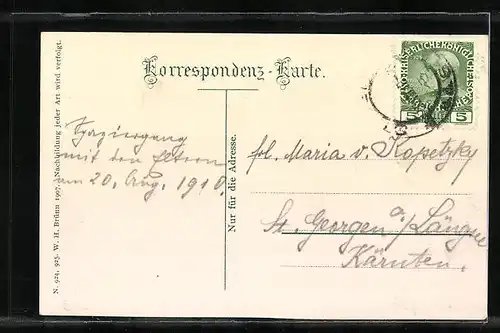 Korrespondenz-Karte.
KAISERLICHE KÖNIGL
5 5
N. 924. 925. W. H. Brünn 1907. Nachbildung jeder Art wird verfolgt.
Spaziergang
mit den Eltern
am 20. Aug. 1910.
Nur für die Adresse.
frl. Maria v. Kopetzky
St. Georgen a/Längsee
Kärnten.